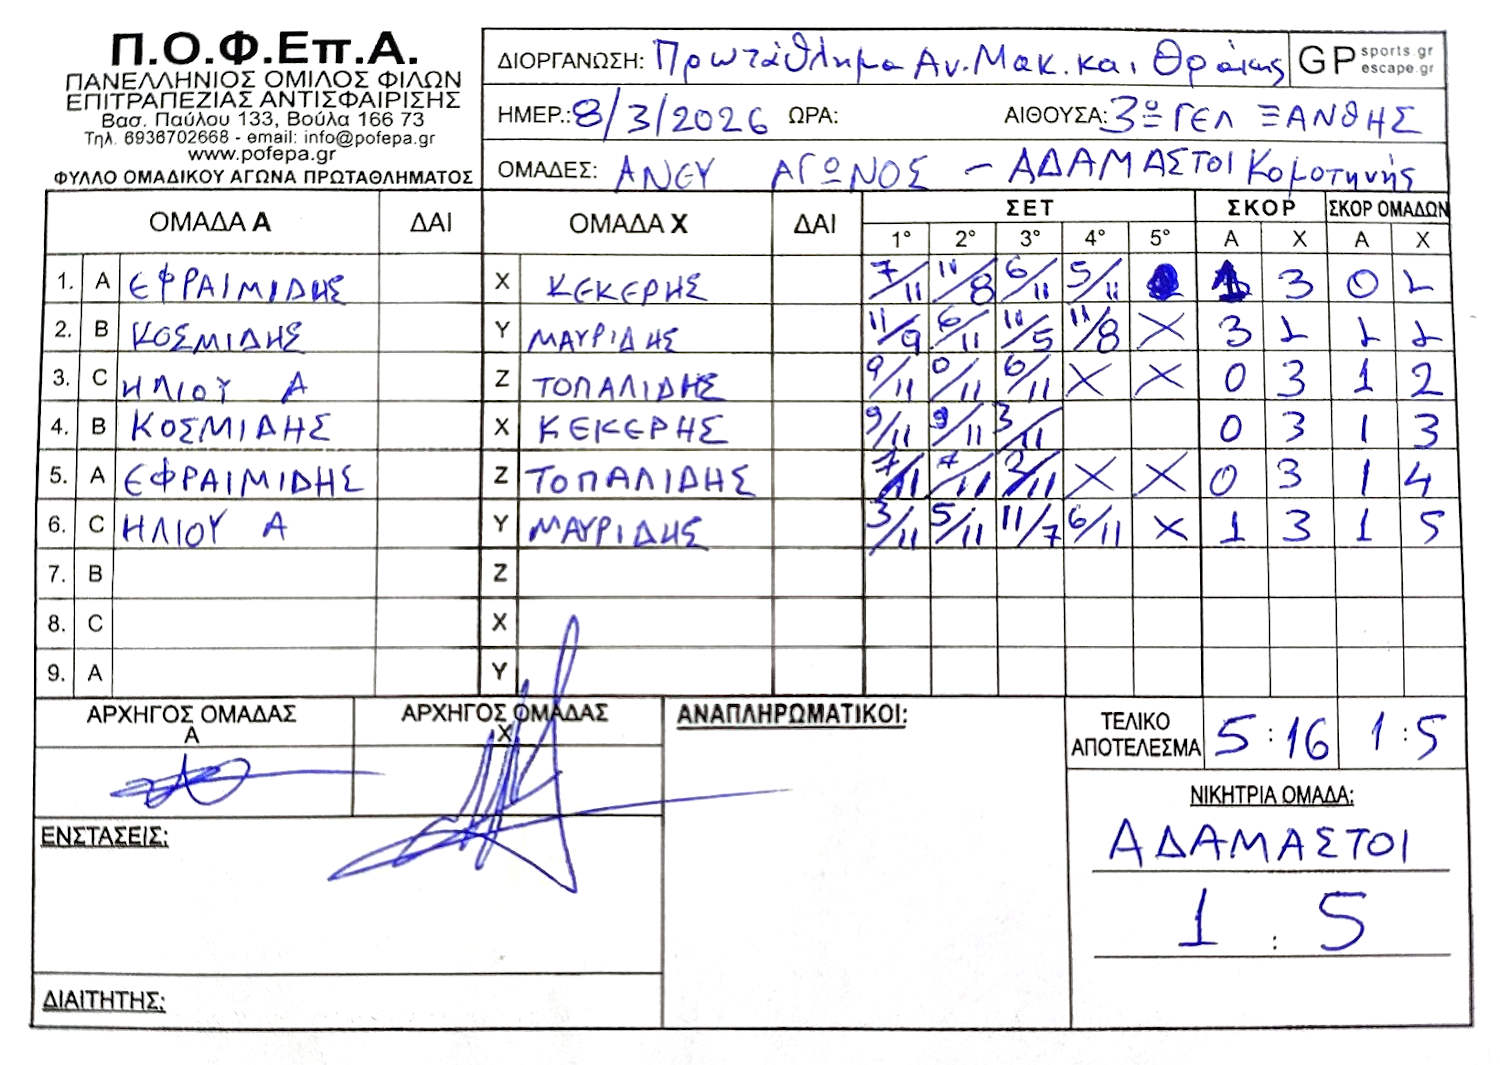 Π.Ο.Φ.Επ.Α.
ΠΑΝΕΛΛΗΝΙΟΣ ΟΜΙΛΟΣ ΦΙΛΩΝ
ΕΠΙΤΡΑΠΕΖΙΑΣ ΑΝΤΙΣΦΑΙΡΙΣΗΣ
Βασ. Παύλου 133, Βούλα 166 73
Τηλ. 6936702668 - email: info@pofepa.gr
www.pofepa.gr
ΦΥΛΛΟ ΟΜΑΔΙΚΟΥ ΑΓΩΝΑ ΠΡΩΤΑΘΛΗΜΑΤΟΣ
ΔΙΟΡΓΑΝΩΣΗ: Πρωτάθλημα Αν. Μακ. και Θράκης
GP sports gr escape.gr
ΗΜΕΡ.: 8/3/2026 ΩΡΑ: ΑΙΘΟΥΣΑ: 3ο ΓΕΛ ΞΑΝΘΗΣ
ΟΜΑΔΕΣ: ΑΝΕΥ ΑΓΩΝΟΣ - ΑΔΑΜΑΣΤΟΙ Κομοτηνής
ΟΜΑΔΑ Α ΔΑΙ ΟΜΑΔΑ Χ ΔΑΙ ΣΕΤ ΣΚΟΡ ΣΚΟΡ ΟΜΑΔΩΝ
1° 2° 3° 4° 5° Α Χ Α Χ
1. Α ΕΦΡΑΙΜΙΔΗΣ Χ ΚΕΚΕΡΗΣ 7/11 11/8 6/11 5/11 1 3 0 1
2. Β ΚΟΣΜΙΔΗΣ Υ ΜΑΥΡΙΔΗΣ 11/9 6/11 11/5 11/8 X 3 1 1 1
3. C ΗΛΙΟΥ Α Ζ ΤΟΠΑΛΙΔΗΣ 9/11 0/11 6/11 X X 0 3 1 2
4. Β ΚΟΣΜΙΔΗΣ Χ ΚΕΚΕΡΗΣ 9/11 9/11 3/11 0 3 1 3
5. Α ΕΦΡΑΙΜΙΔΗΣ Ζ ΤΟΠΑΛΙΔΗΣ 7/11 7/11 3/11 X X 0 3 1 4
6. C ΗΛΙΟΥ Α Υ ΜΑΥΡΙΔΗΣ 3/11 5/11 11/7 6/11 X 1 3 1 5
7. Β Ζ
8. C Χ
9. Α Υ
ΑΡΧΗΓΟΣ ΟΜΑΔΑΣ Α
ΑΡΧΗΓΟΣ ΟΜΑΔΑΣ Χ
ΑΝΑΠΛΗΡΩΜΑΤΙΚΟΙ:
ΤΕΛΙΚΟ ΑΠΟΤΕΛΕΣΜΑ 5:16 1:5
ΝΙΚΗΤΡΙΑ ΟΜΑΔΑ:
ΑΔΑΜΑΣΤΟΙ
1 : 5
ΕΝΣΤΑΣΕΙΣ:
ΔΙΑΙΤΗΤΗΣ: